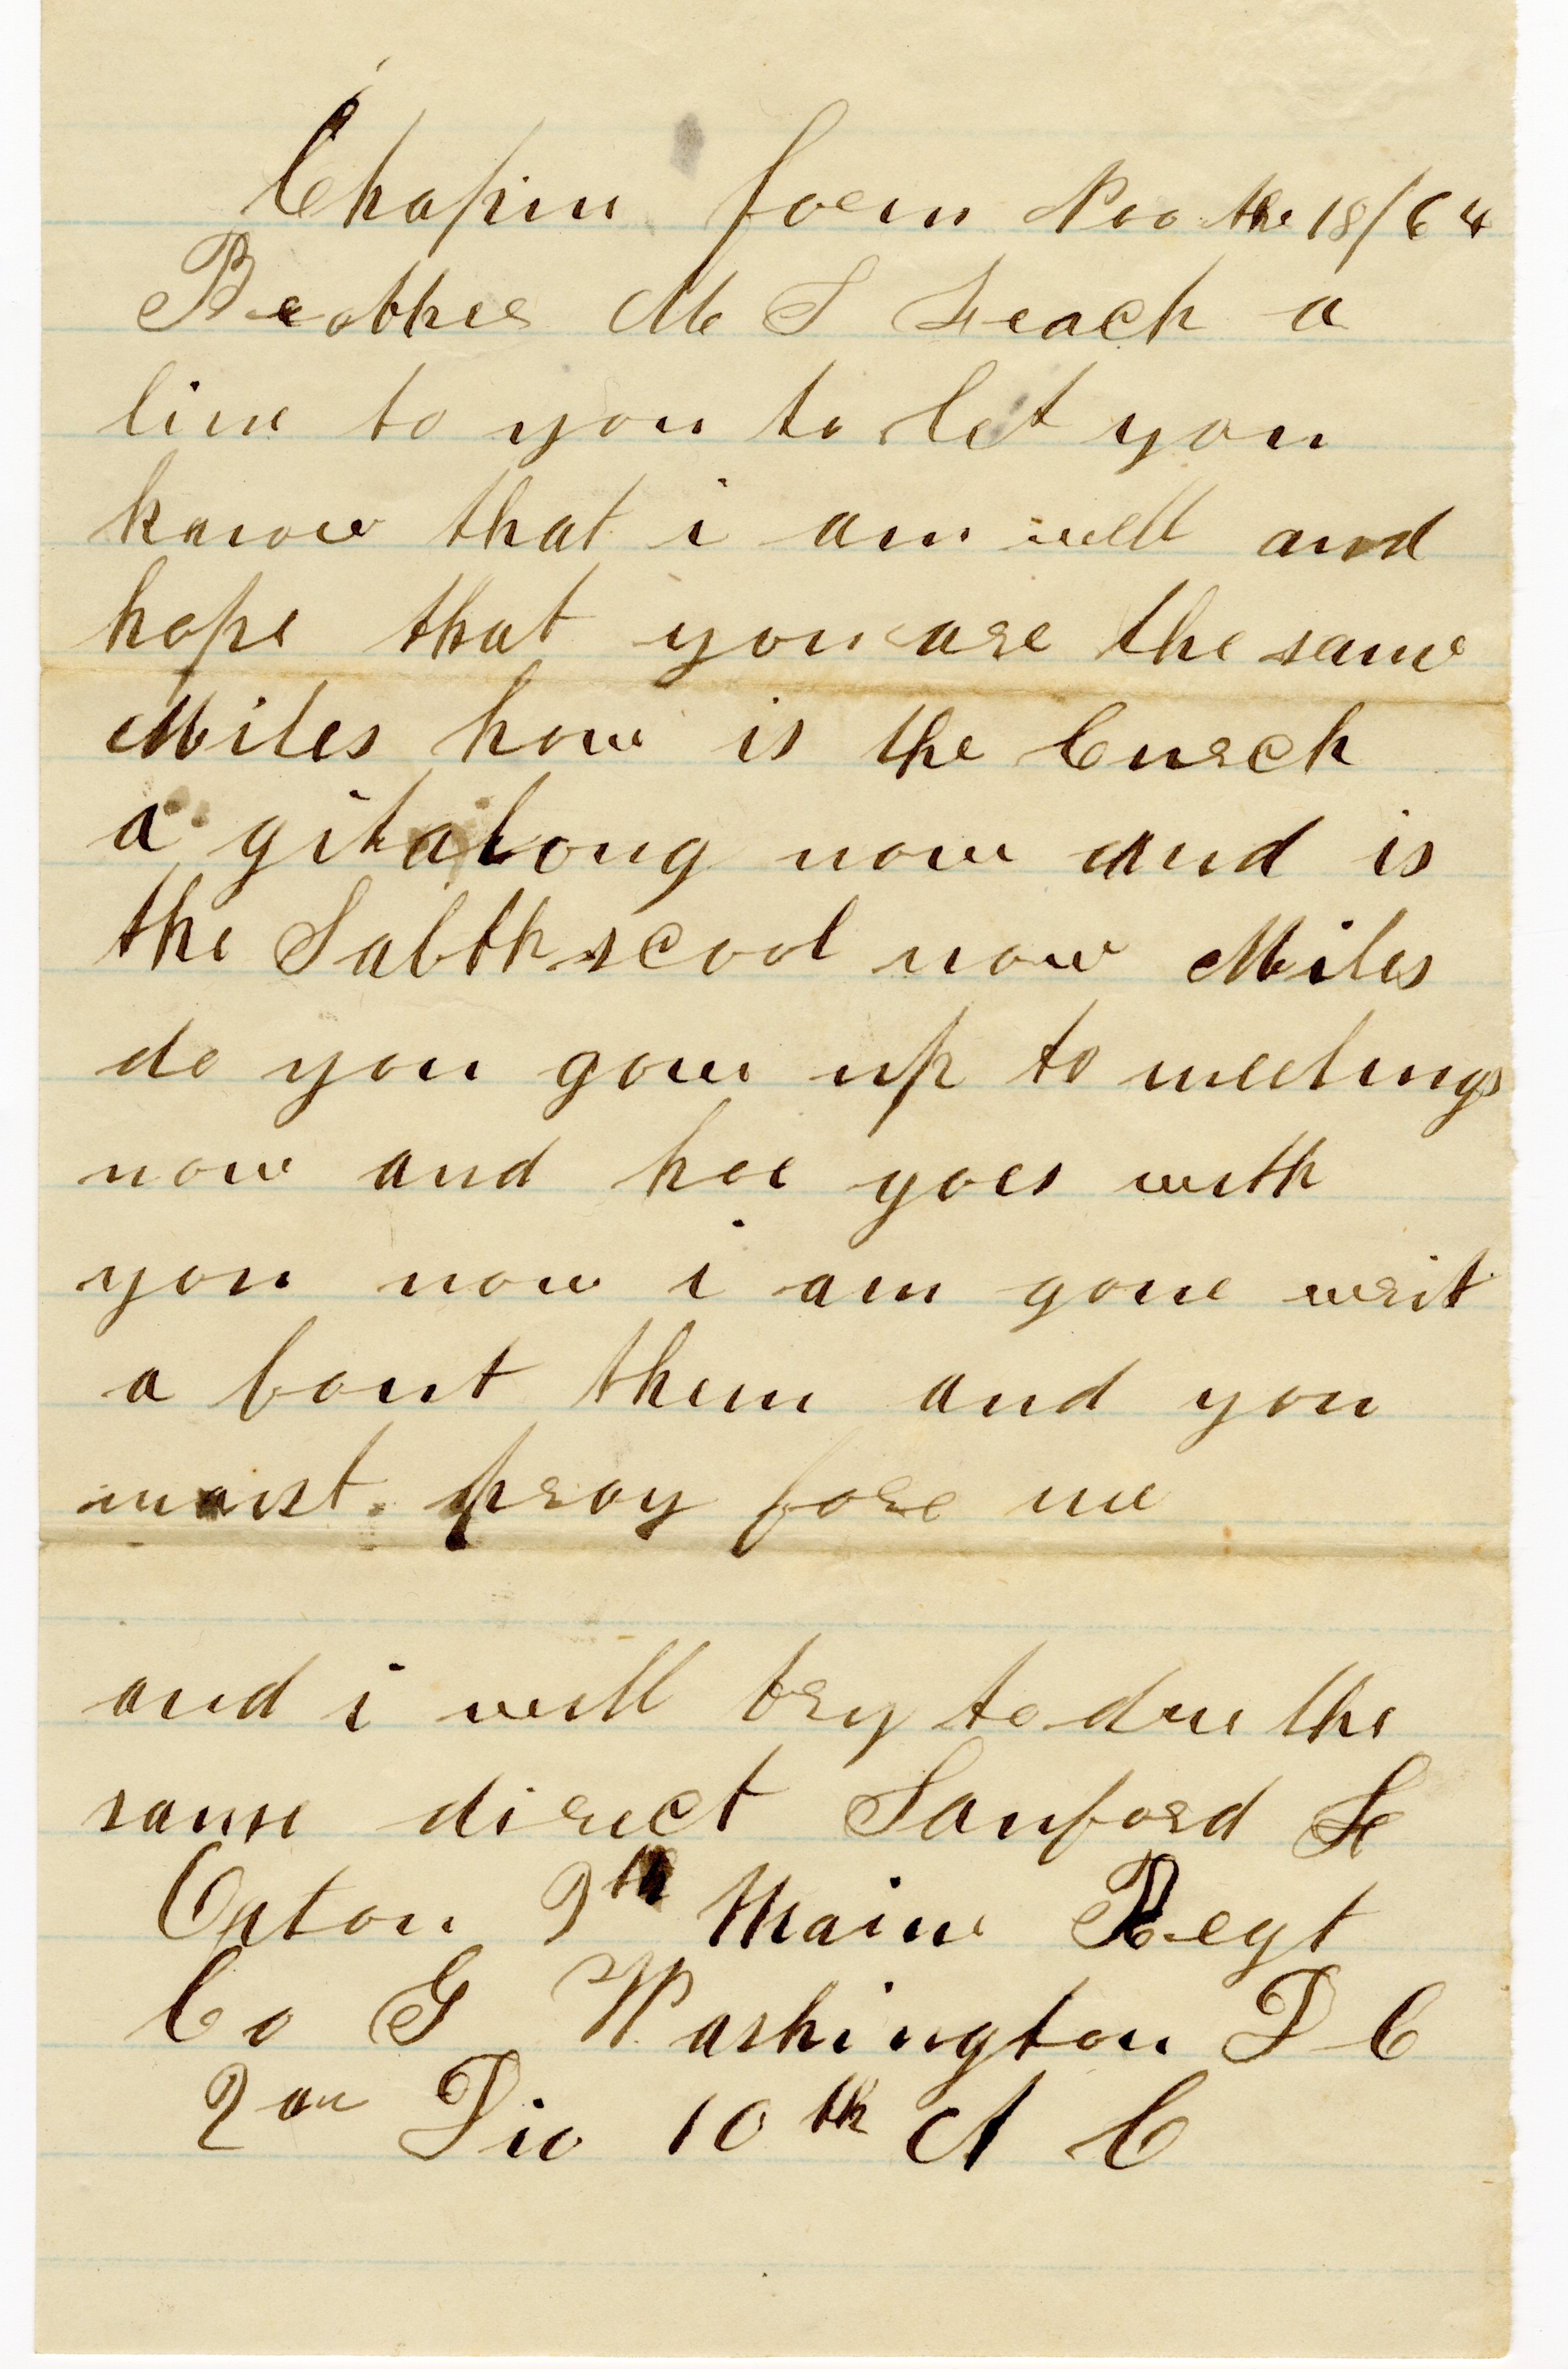 Chapin farm Nov the 18/64
Brother M S Leach a
line to you to let you
know that i am well and
hope that you are the same
Miles how is the Curch
a gitalong now and is
the Sabth scool now Miles
do you gow up to meetings
now and hoe goes with
you now i am gone writ
a bout them and you
must pray fore me
and i will try to due the
same direct Sanford L
Orton 9th Maine Regt
Co G Washington D C
2on Div 10th A C